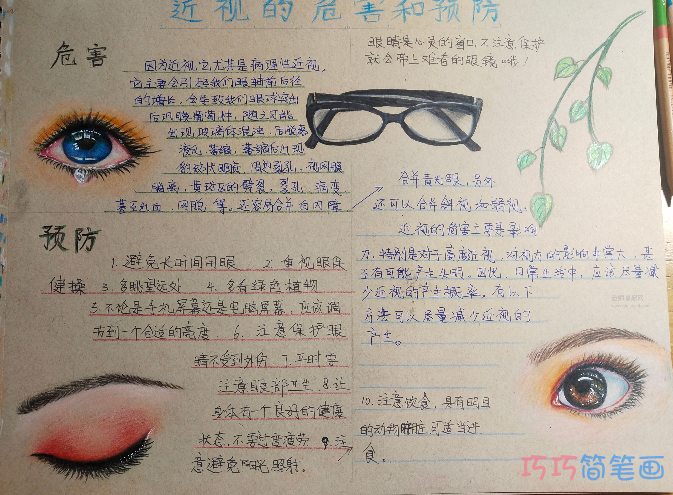 近视的危害和预防
危害
因为近视,尤其是病理性近视,
它主要会引起我们眼睛前后径
的增长,会导致我们眼球突出
后巩膜葡萄肿,随之可能
出现玻璃体混浊、后脱离
液化、萎缩,萎缩后出现
眼睛是心灵的窗口,不注意保护
就会带上难看的眼镜哦!
合并青光眼,另外
还可以合并斜视和弱视。
近视的危害主要是影响
预防
1.避免长时间用眼 2.重视眼保
健操 3.多眺望远处 4.多看绿色植物
5.不论是手机屏幕还是电脑屏幕,应应调
节到一个合适的亮度 6.注意保护眼
睛不受到外伤 7.平时要
注意眼部卫生 8.让
身体有一个良好的健康
状态,不要过度疲劳 9.注
意避免阳光照射。
力.特别是对于高度近视,对视力的影响非常大,甚
至有可能产生失明。因此,日常生活中,应该尽量减
少近视的产生概率。有以下
方法可以尽量减少近视的
产生。
10.注意饮食,具有明目
的动物肝脏,可适当进
食。
巧巧简笔画